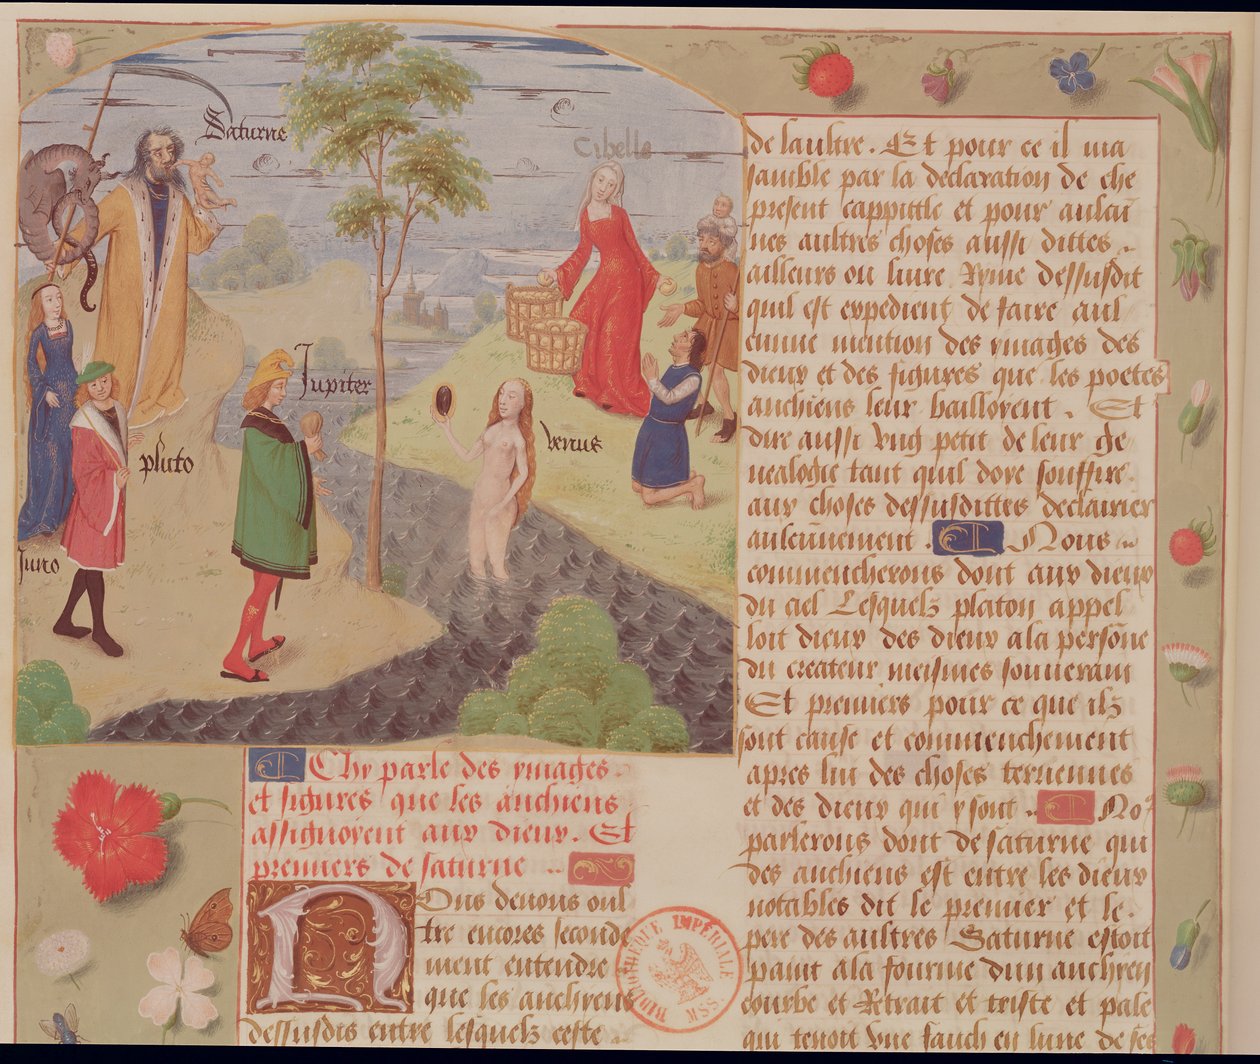 Saturne
Cibelle
Jupiter
Venus
pluto
Juno
Chy parle des ymages
et figures que les anchiens
assignoyent aux dieux. Et
premiers de saturne
Nous deuons oul
tre encores seconde
ment entendre
que les anchiens
dessusdis entre lesquelz ceste
BIBLIOTHEQUE IMPERIALE MSS.
de laultre. Et pour ce il ma
samble par la declaration de che
present cappittle et pour aulcu
nes aultres choses aussi dittes
ailleurs ou liure dessusdit
quil est expedient de faire aul
cune mention des ymages des
dieux et des figures que les poetes
anchiens leur baillerent. Et
dire aussi vng petit de leur ge
nealogie tant quil doye souffire
aux choses dessusdittes declairier
aulcunement. Nous
commencherons dont aux dieux
du ciel Lesquelz platon appel
loit dieux des dieux a la persone
du createur meismes souuerain
Et premiers pour ce que ilz
sont cause et commenchement
apres lui des choses terriennes
et des dieux qui y sont No9
parlerons dont de saturne qui
des anchiens est entre les dieux
notables dit le premier et le
pere des aultres Saturne estoit
paint a la fourme dun anchien
courbe et Retrait et triste et pale
qui tenoit vne fauch en lune de ses